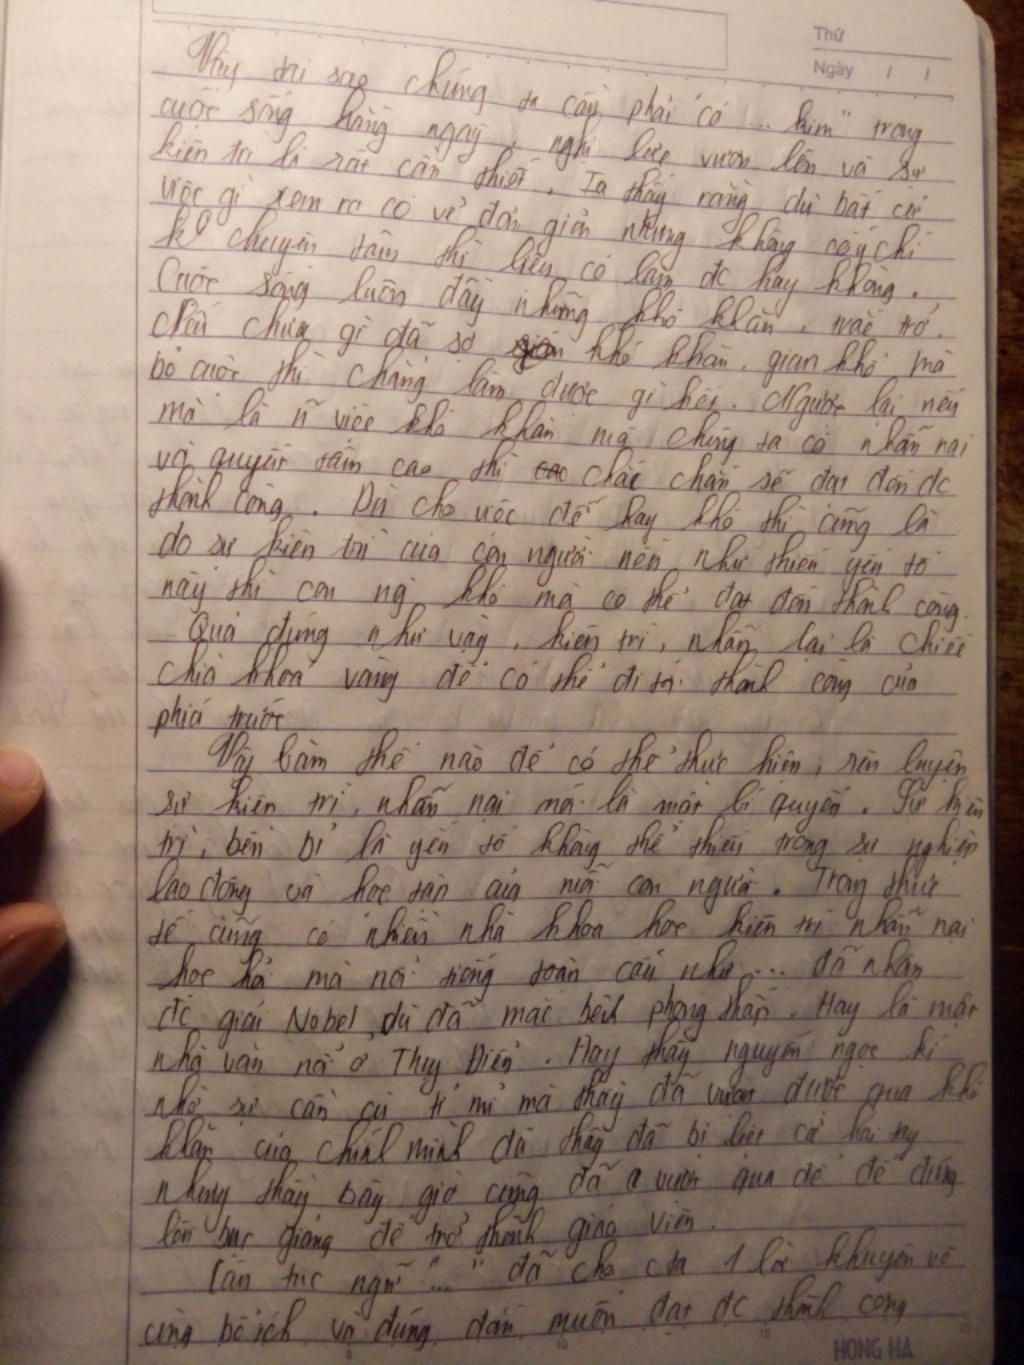 Thứ
Ngày / /
Vậy tại sao chúng ta cần phải "có ... kim" trong
cuộc sống hằng ngày, nghị lực vươn lên và sự
kiên trì là rất cần thiết. Ta thấy rằng dù bất cứ
việc gì xem ra có vẻ đơn giản nhưng không có ý chí
k chuyên tâm thì liệu có làm đc hay không.
Cuộc sống luôn đầy những khó khăn, trắc trở.
Nếu chưa gì đã sợ khó khăn, gian khổ mà
bỏ cuộc thì chẳng làm được gì hết. Ngược lại nếu
mà là n~ việc khó khăn mà chúng ta có nhẫn nại
và quyết tâm cao thì chắc chắn sẽ đạt đến đc
thành công. Dù cho việc dễ hay khó thì cũng là
do sự kiên trì của con người nên như thiếu yếu tố
này thì con ng khó mà có thể đạt đến thành công.
Quả đúng như vậy, kiên trì, nhẫn lại là chiếc
chìa khoá vàng để có thể đi tới thành công của
phía trước
Vậy làm thế nào để có thể thực hiện, rèn luyện
sự kiên trì, nhẫn nại nó là một bí quyết. Sự kiên
trì, bền bỉ là yếu tố không thể thiếu trong sự nghiệp
lao động và học tập của mỗi con người. Trong thực
tế cũng có nhiều nhà khoa học kiên trì nhẫn nại
học hỏi mà nổi tiếng toàn cầu như ... đã nhận
đc giải Nobel dù đã mắc bệnh phong thấp. Hay là một
nhà văn nữ ở Thụy Điển. Hay thầy nguyễn ngọc kí
nhờ sự cần cù tỉ mỉ mà thầy đã vượt được qua khó
khăn của chính mình dù thầy đã bị liệt cả hai tay
nhưng thầy bây giờ cũng đã vượt qua để đứng
lên bục giảng để trở thành giáo viên.
Câu tục ngữ "..." đã cho cta 1 lời khuyên vô
cùng bổ ích và đúng đắn muốn đạt đc thành công
HONG HA